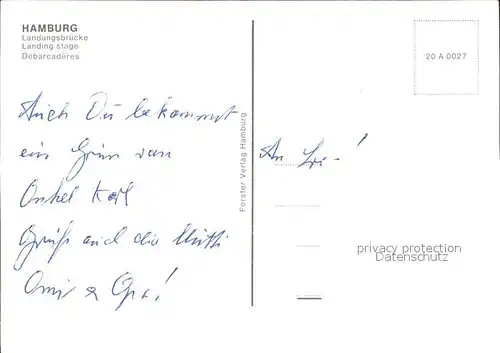 HAMBURG
Landungsbrücke
Landing stage
Débarcadères
20 A 0027
Auch Du bekommst
ein von
Onkel Karl
Grüß auch die Mutti
Omi & Opa!
Forster Verlag Hamburg
An
privacy protection
Datenschutz